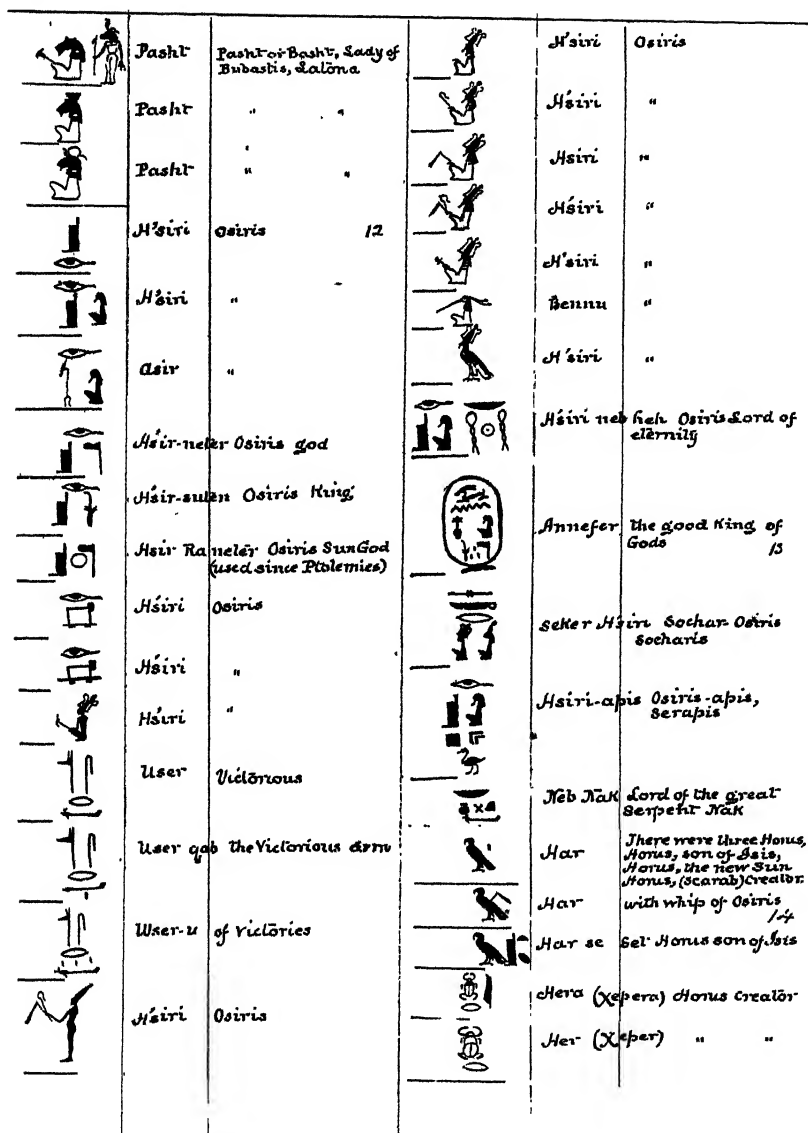 Pasht Pasht or Basht, Lady of
Bubastis, Latona
Pasht " "
Pasht " "
H'siri Osiris 12
H'siri "
Asir "
H'sir-neter Osiris god
H'sir-suten Osiris King
Hsir Ra neter Osiris Sun God
(used since Ptolemies)
H'siri Osiris
H'siri "
H'siri "
User Victorious
User qab the Victorious Arm
User-u of Victories
H'siri Osiris
H'siri Osiris
H'siri "
Hsiri "
H'siri "
H'siri "
Bennu "
H'siri "
H'siri neb heh Osiris Lord of
eternity
Annefer the good King of
Gods 13
Seker H'siri Sochar-Osiris
Socharis
Hsiri-apis Osiris-apis,
Serapis
Neb Nak Lord of the great
Serpent Nak
Har There were three Horus,
Horus, son of Isis,
Horus, the new Sun
Horus, (scarab) Creator.
Har with whip of Osiris
14
Har se Set Horus son of Isis
Hera (χepera) Horus Creator
Her (χeper) " "